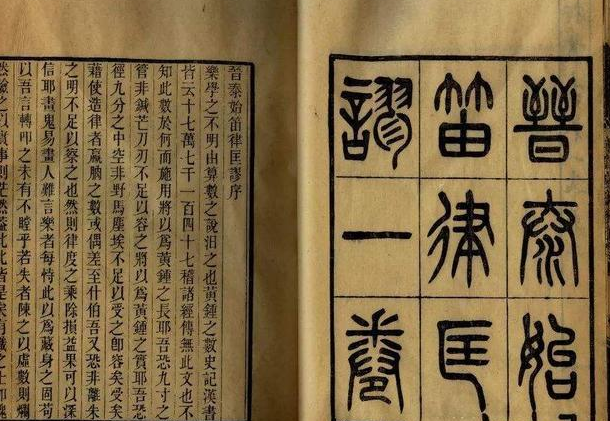 晉泰始
笛律匡
謬一卷
晉泰始笛律匡謬序
樂學之不明由算數之說汨之也黃鍾之數史記漢書
皆云十七萬七千一百四十七稽諸經傳無此文也不
知此數於何而施用將以爲黃鍾之長耶吾恐九寸之
管非鍼芒刀刃不足以容之將以爲黃鍾之實耶吾恐
徑九分之中空非野馬塵埃不足以受之卽容矣受矣
藉使造律者嬴朒之數或偶差至什伯吾又恐非離朱
之明不足以察之也然則律度之乘除損益果可以深
信耶畫鬼易畫人難言樂者每恃此以爲藏身之固苟
以吾言轉叩之未有不瞠乎若失者陳之以虛數則爛
然驗之以實事則茫然蓋比比皆是矣有識之士卽